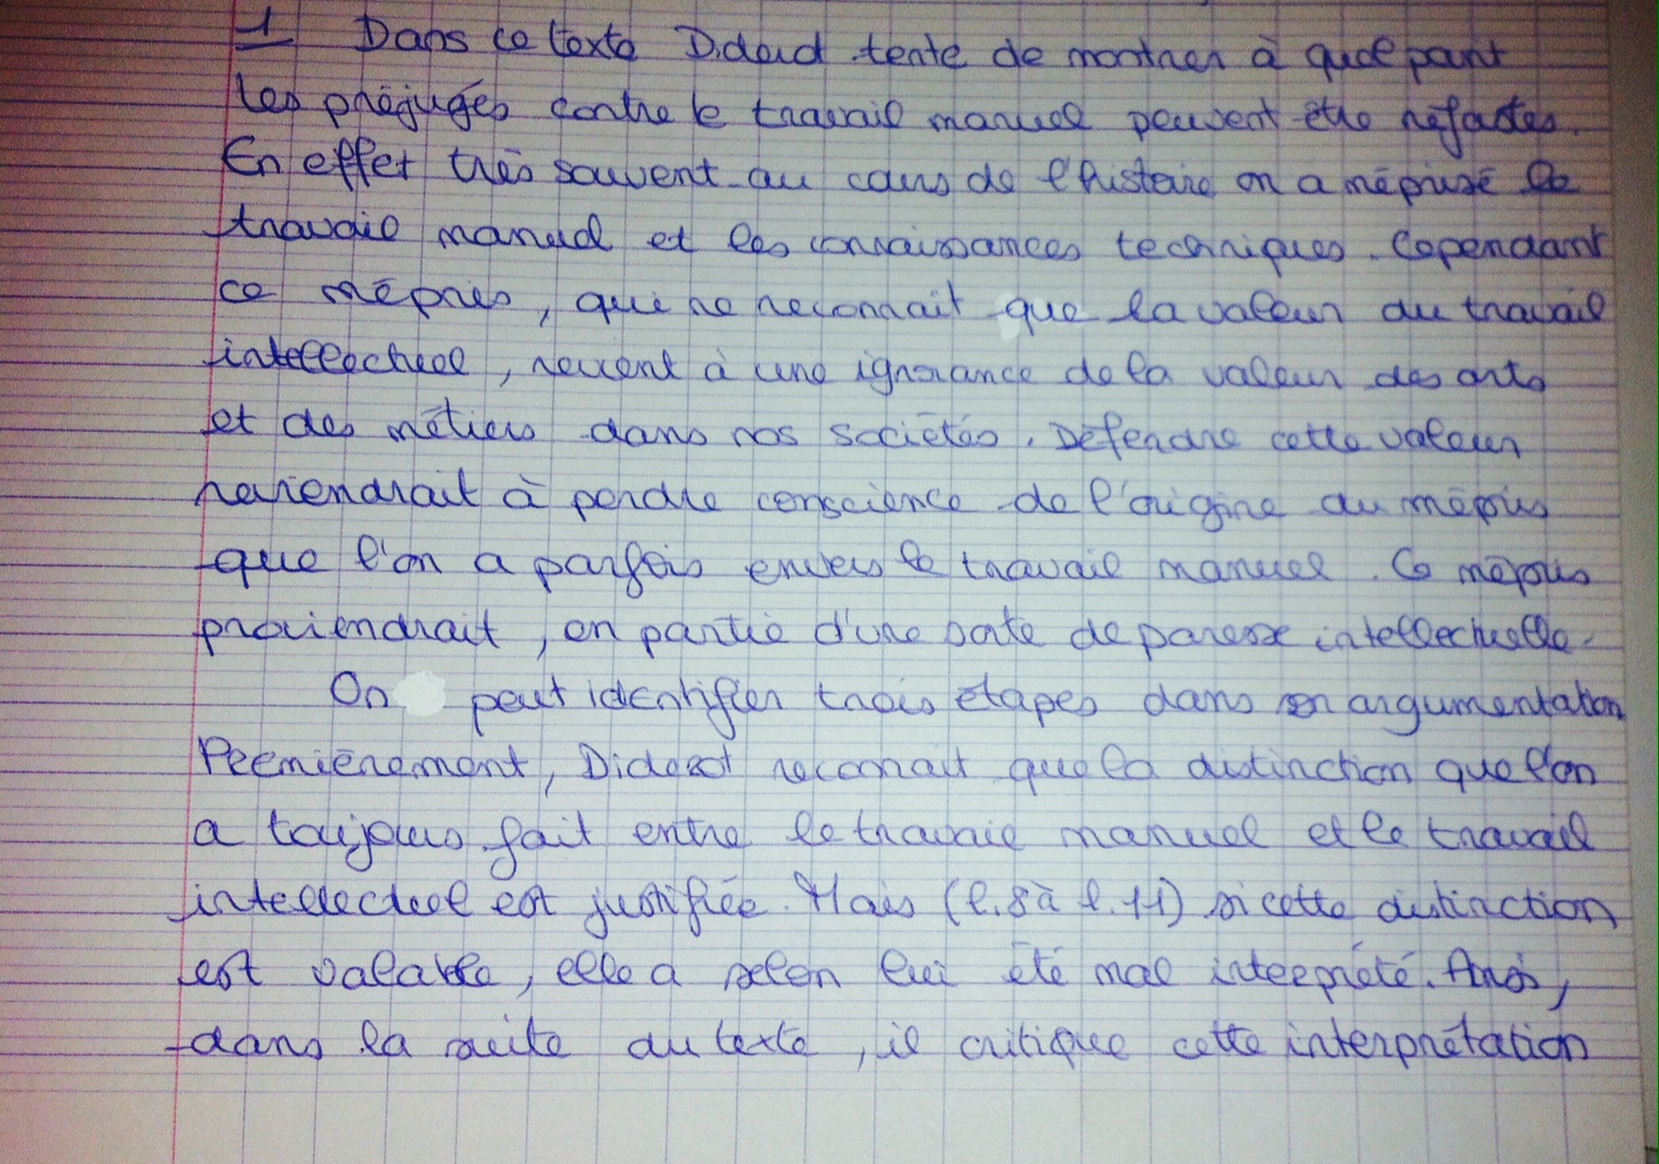 1 Dans ce texte Diderot tente de montrer à quel point
les préjugés contre le travail manuel peuvent être néfastes.
En effet très souvent au cours de l'histoire on a méprisé le
travail manuel et les connaissances techniques. Cependant
ce mépris, qui ne reconnait que la valeur du travail
intellectuel, revient à une ignorance de la valeur des arts
et des métiers dans nos sociétés. Défendre cette valeur
reviendrait à perdre conscience de l'origine du mépris
que l'on a parfois envers le travail manuel. Ce mépris
proviendrait, en partie d'une sorte de paresse intellectuelle.
On peut identifier trois étapes dans son argumentation
Premièrement, Diderot reconnait que la distinction que l'on
a toujours fait entre le travail manuel et le travail
intellectuel est justifiée. Mais (l.8 à l.11) si cette distinction
est valable, elle a selon lui été mal interprété. Ainsi,
dans la suite du texte, il critique cette interprétation